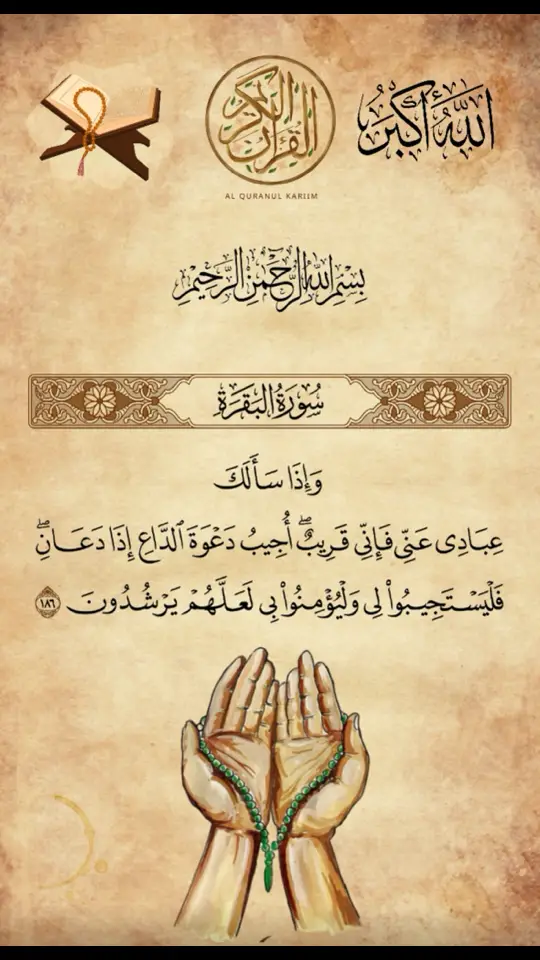 القرآن الكريم
الله أكبر
AL QURANUL KARIIM
بِسْمِ اللهِ الرَّحْمٰنِ الرَّحِيْمِ
سُورَةُ البَقَرَةِ
وَإِذَا سَأَلَكَ
عِبَادِى عَنِّى فَإِنِّى قَرِيبٌ ۖ أُجِيبُ دَعْوَةَ ٱلدَّاعِ إِذَا دَعَانِ ۖ
فَلْيَسْتَجِيبُوا۟ لِى وَلْيُؤْمِنُوا۟ بِى لَعَلَّهُمْ يَرْشُدُونَ ١٨٦